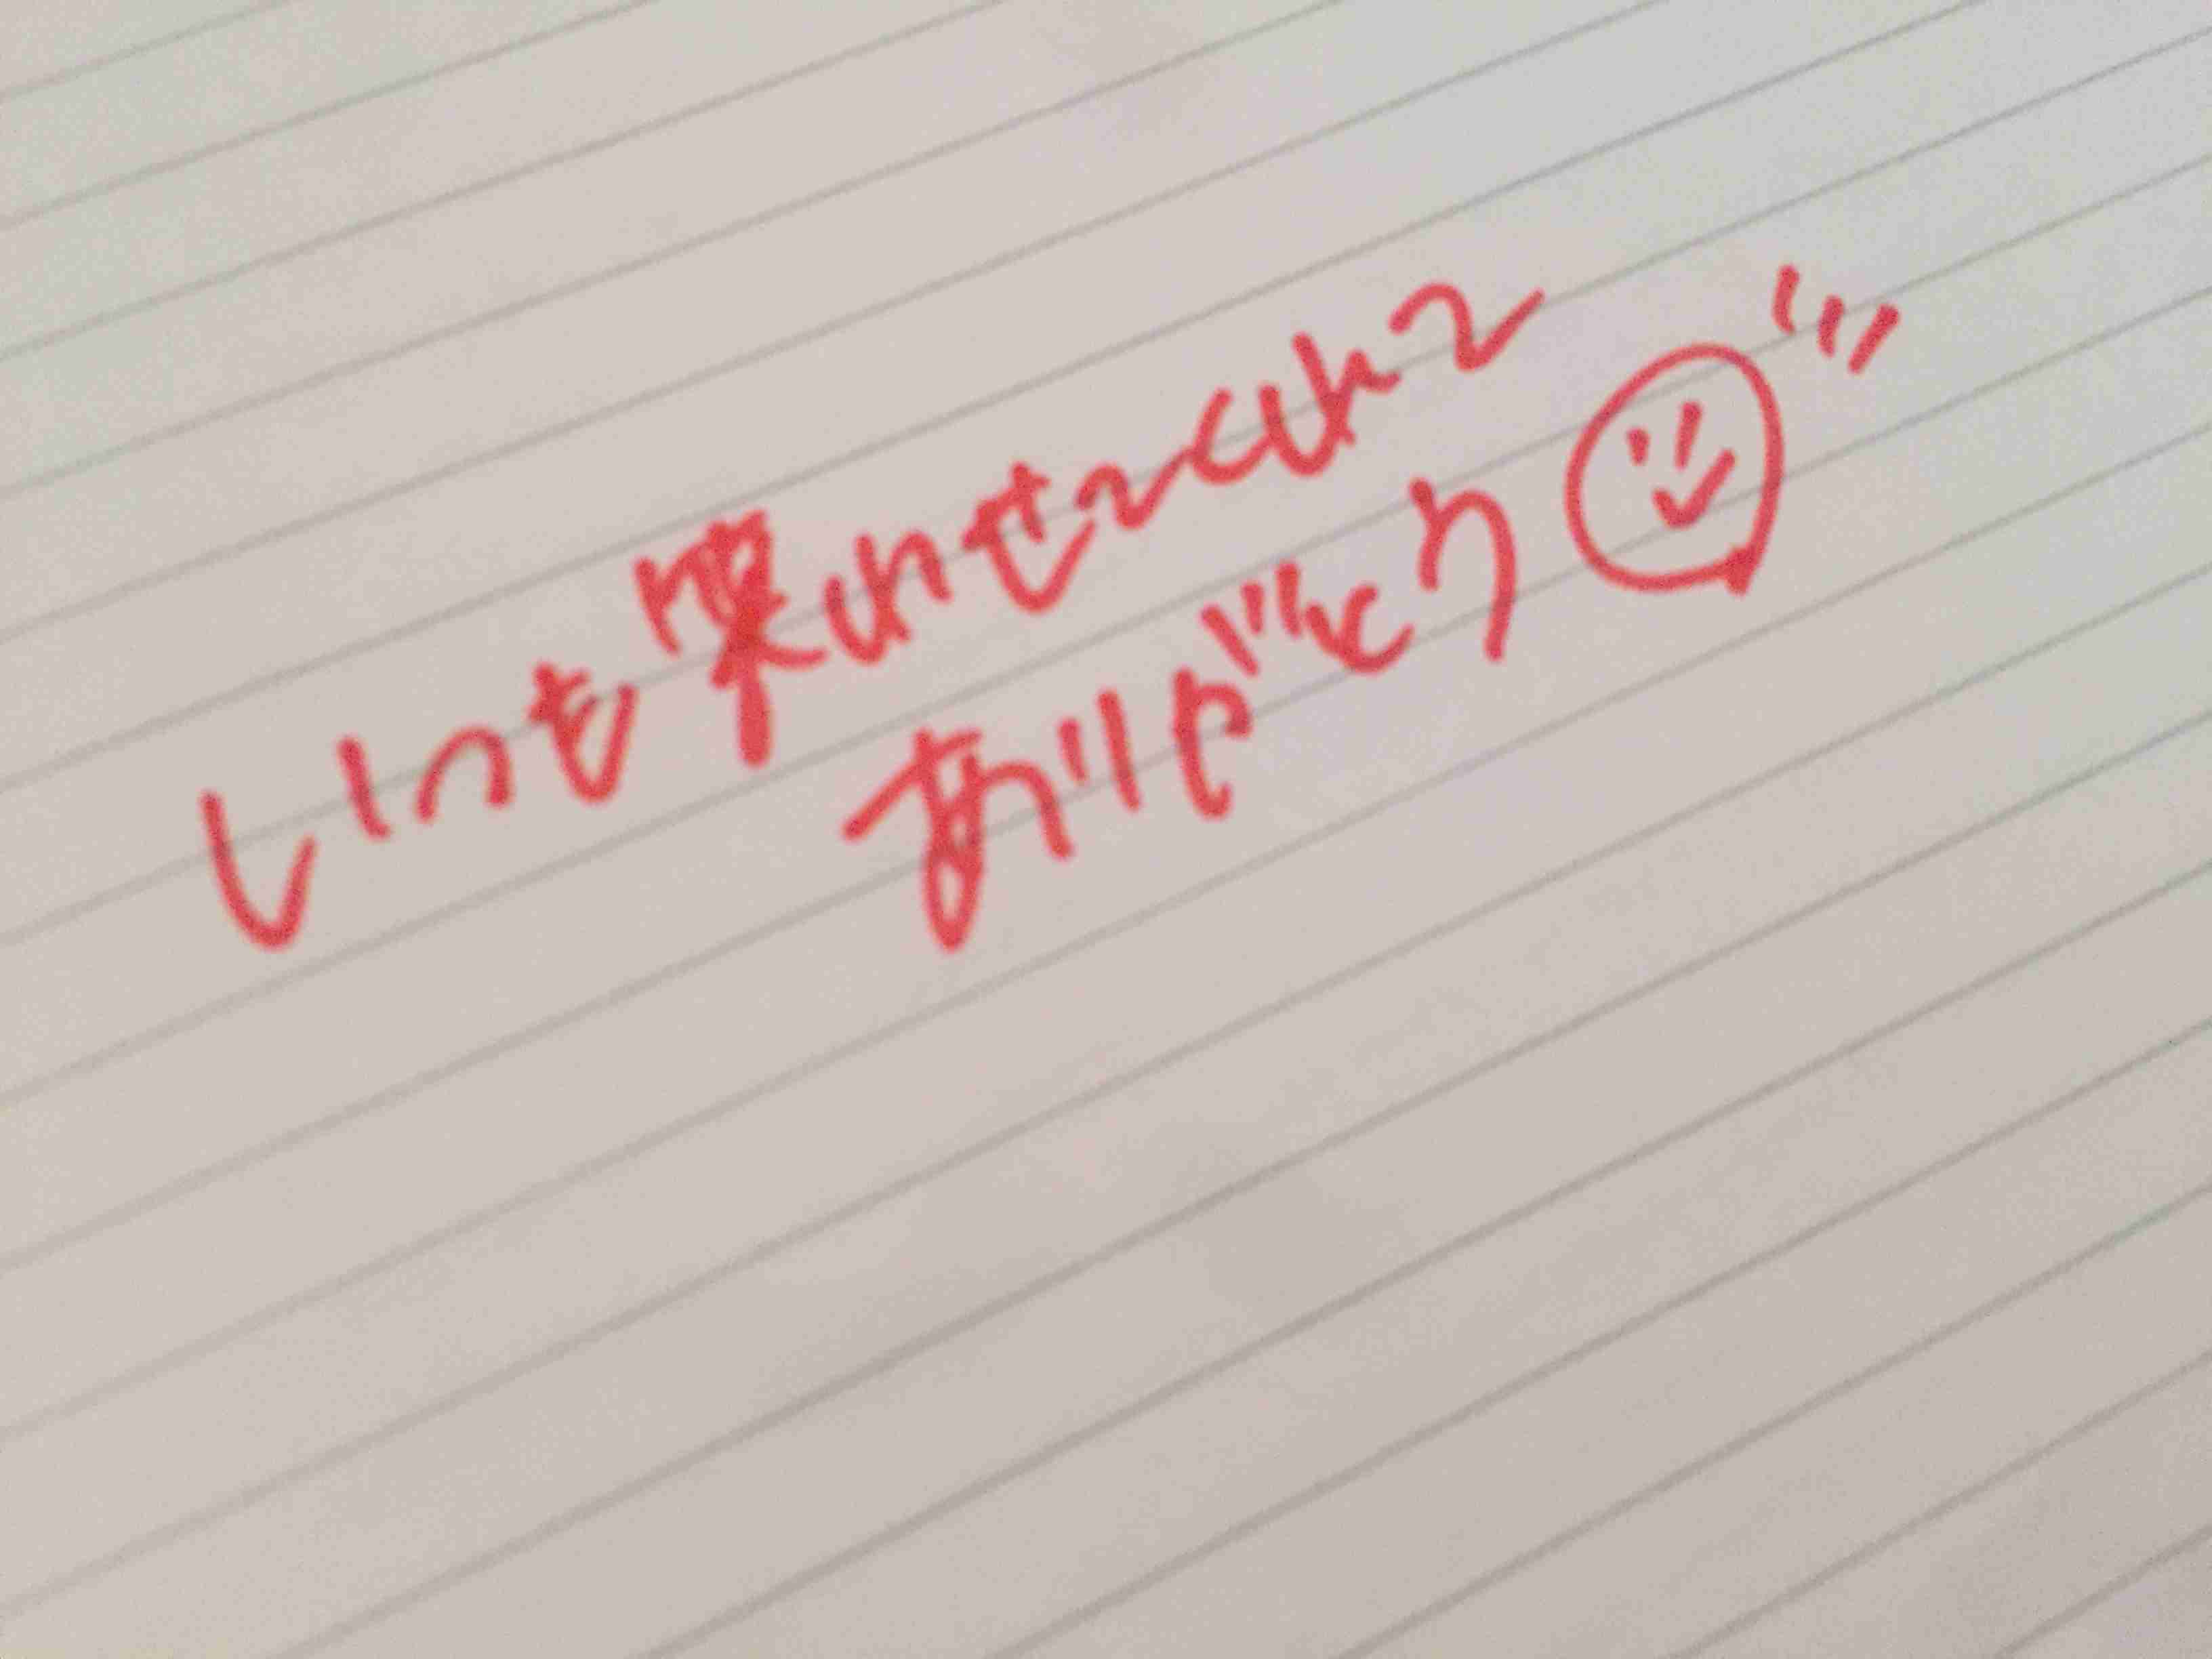 いつも笑わせてくれて
ありがとう